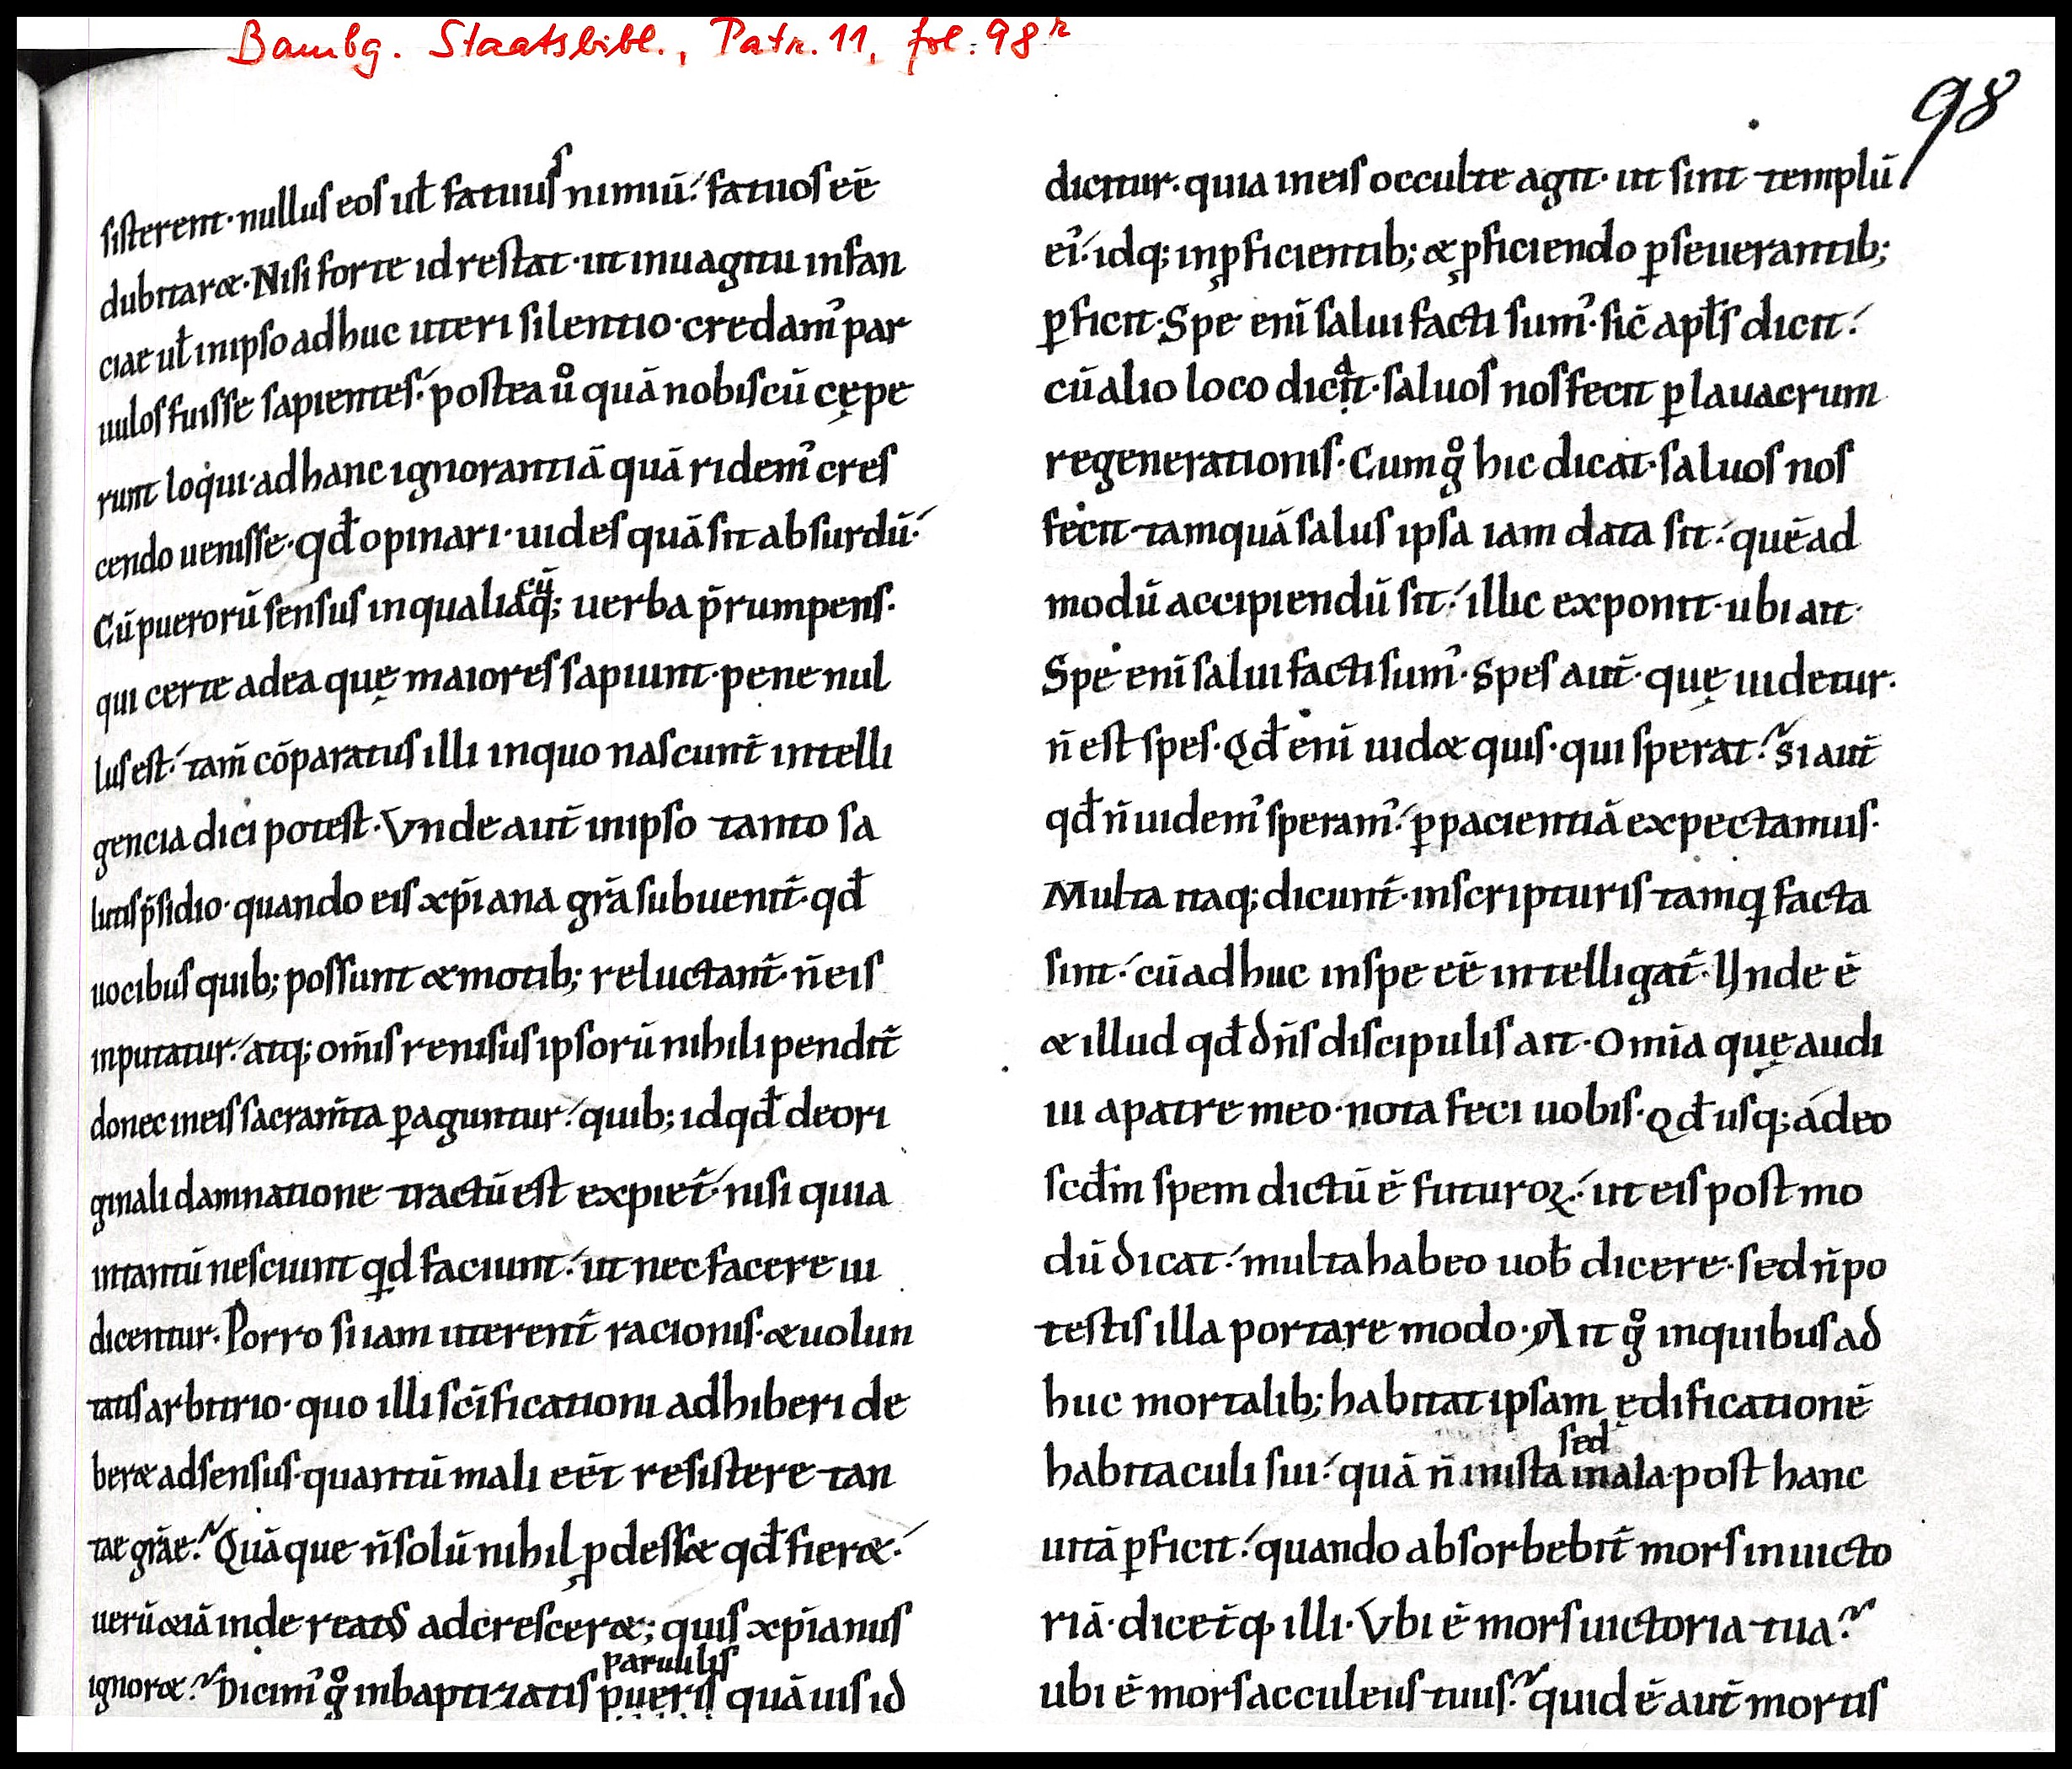 Bambg. Staatsbibl., Patr. 11, fol. 98ʳ
98
sisterent· nullus eos ul̄ fatuus nimiū· fatuos eē
dubitaret· Nisi forte id restat· ut in uagitu infan
ciae ul̄ in ipso adhuc uteri silentio· credam᾽ par
uulos fuisse sapientes· postea uº quā nobiscū cępe
runt loqui· ad hanc ignorantiā quā ridem᾽ cres
cendo uenisse· qd̄ opinari· uides quā sit absurdū·
Cū puerorū sensus in qualiacūq; uerba p̄rumpens·
qui certe ad ea quę maiores sapiunt· pene nul
lus est· tam̄ cōparatus illi in quo nascunt̄ intelli
gencia dici potest· Vnde aut̄ in ipso tanto sa
lutis p̄sidio· quando eis xp̄iana gr̄a subuenit̄· qd̄
uocibus quib; possunt & motib; reluctant̄· n̄ eis
inputatur· atq; om̄is renisus ipsorū nihili pendit̄
donec in eis sacram̄ta ꝑaguntur· quib; id qd̄ de ori
ginali damnatione tractū est expiet̄· nisi quia
intantū nesciunt qd faciunt· ut nec facere iu
dicentur· Porro si iam uterent̄ racionis· & uolun
tatis arbitrio· quo illi sc̄ificationi adhiberi de
beret adsensus· quantū mali eēt resistere tan
tae grāe· Quā que n̄ solū nihil ꝓdesset qd̄ fieret·
uerū etiā inde reatus adcresceret; quis xp̄ianus
ignoret· Dicim᾽ gº in baptizatis pueris paruulis quāuis id
dicitur· quia in eis occulte agit· ut sint templū
ei᾽· idq; in ꝓficientib; & ꝓficiendo ꝑseuerantib;
ꝑficit· Spe enī salui facti sum᾽· sic̄ apl̄s dicit·
cū alio loco dicat· saluos nos fecit ꝑ lauacrum
regenerationis· Cum gº hic dicat· saluos nos
fecit tamquā salus ipsa iam data sit· quē ad
modū accipiendū sit· illic exponit· ubi ait·
Spe enī salui facti sum᾽· Spes aut̄· quę uidetur·
n̄ est spes· Qd̄ enī uidet quis· qui sperat· Si aut̄
qd̄ n̄ uidem᾽ speram᾽· ꝑ pacientiā expectamus·
Multa itaq; dicunt̄· in scripturis tamq facta
sint· cū adhuc in spe eē intelligat̄· Vnde ē
& illud qd̄ dn̄s discipulis ait· Omīa quę audi
ui a patre meo· nota feci uobis· Qd̄ usq; adeo
scd̄m spem dictū ē futuroꝝ· ut eis post mo
dū dicat· multa habeo uob̄ dicere· sed n̄ po
testis illa portare modo· Ait gº in quibus ad
huc mortalib; habitat ipsam ędificationē
habitaculi sui· quā n̄ in ista sed in ala· post hanc
uitā ꝑficit· quando absorbebit̄ mors in uicto
riā· dicet̄q; illi· Vbi ē mors uictoria tua·
ubi ē mors acculeus tuus· quid ē aut̄ mortis